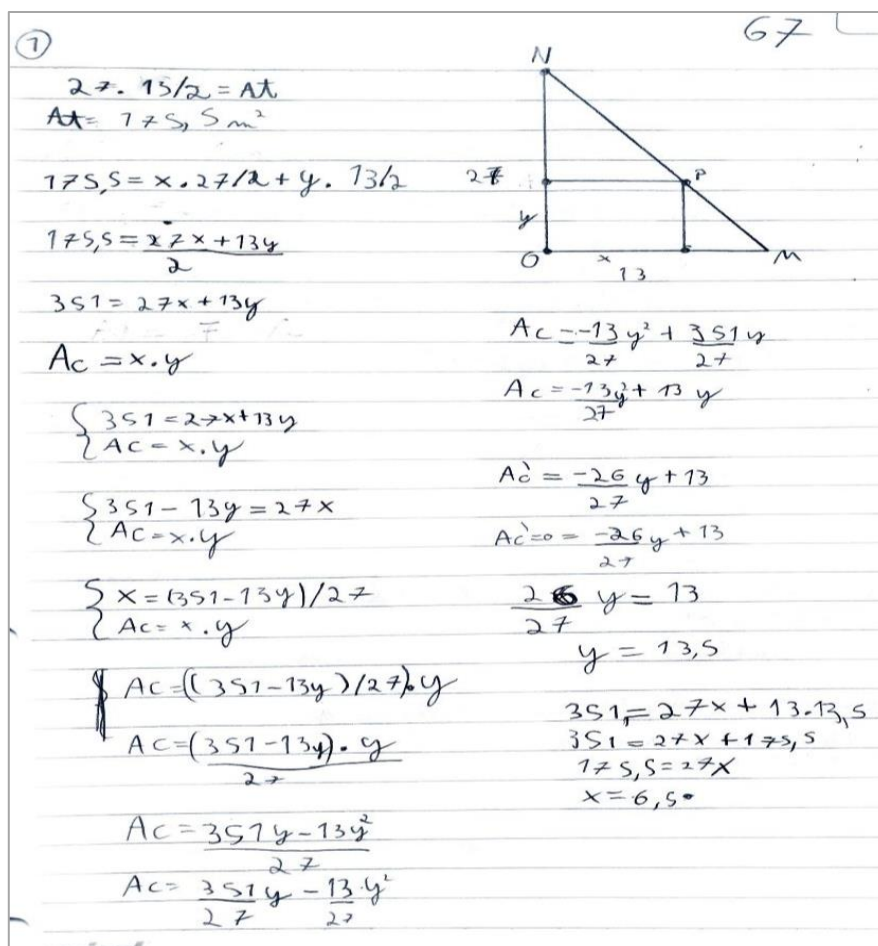 67
①
27. 13/2 = At
At = 175,5 m²
175,5 = x.27/2 + y. 13/2
175,5 = 27x + 13y / 2
351 = 27x + 13y
Ac = x.y
{ 351 = 27x + 13y
{ Ac = x.y
{ 351 - 13y = 27x
{ Ac = x.y
{ x = (351 - 13y)/27
{ Ac = x.y
Ac = ((351 - 13y)/27).y
Ac = (351 - 13y). y / 27
Ac = 351y - 13y² / 27
Ac = 351/27 y - 13/27 . y²
N
27
P
y
O
x
M
13
Ac = -13/27 y² + 351/27 y
Ac = -13y²/27 + 13 y
Ac` = -26/27 y + 13
Ac` = 0 = -26/27 y + 13
26/27 y = 13
y = 13,5
351 = 27x + 13.13,5
351 = 27x + 175,5
175,5 = 27x
x = 6,5.